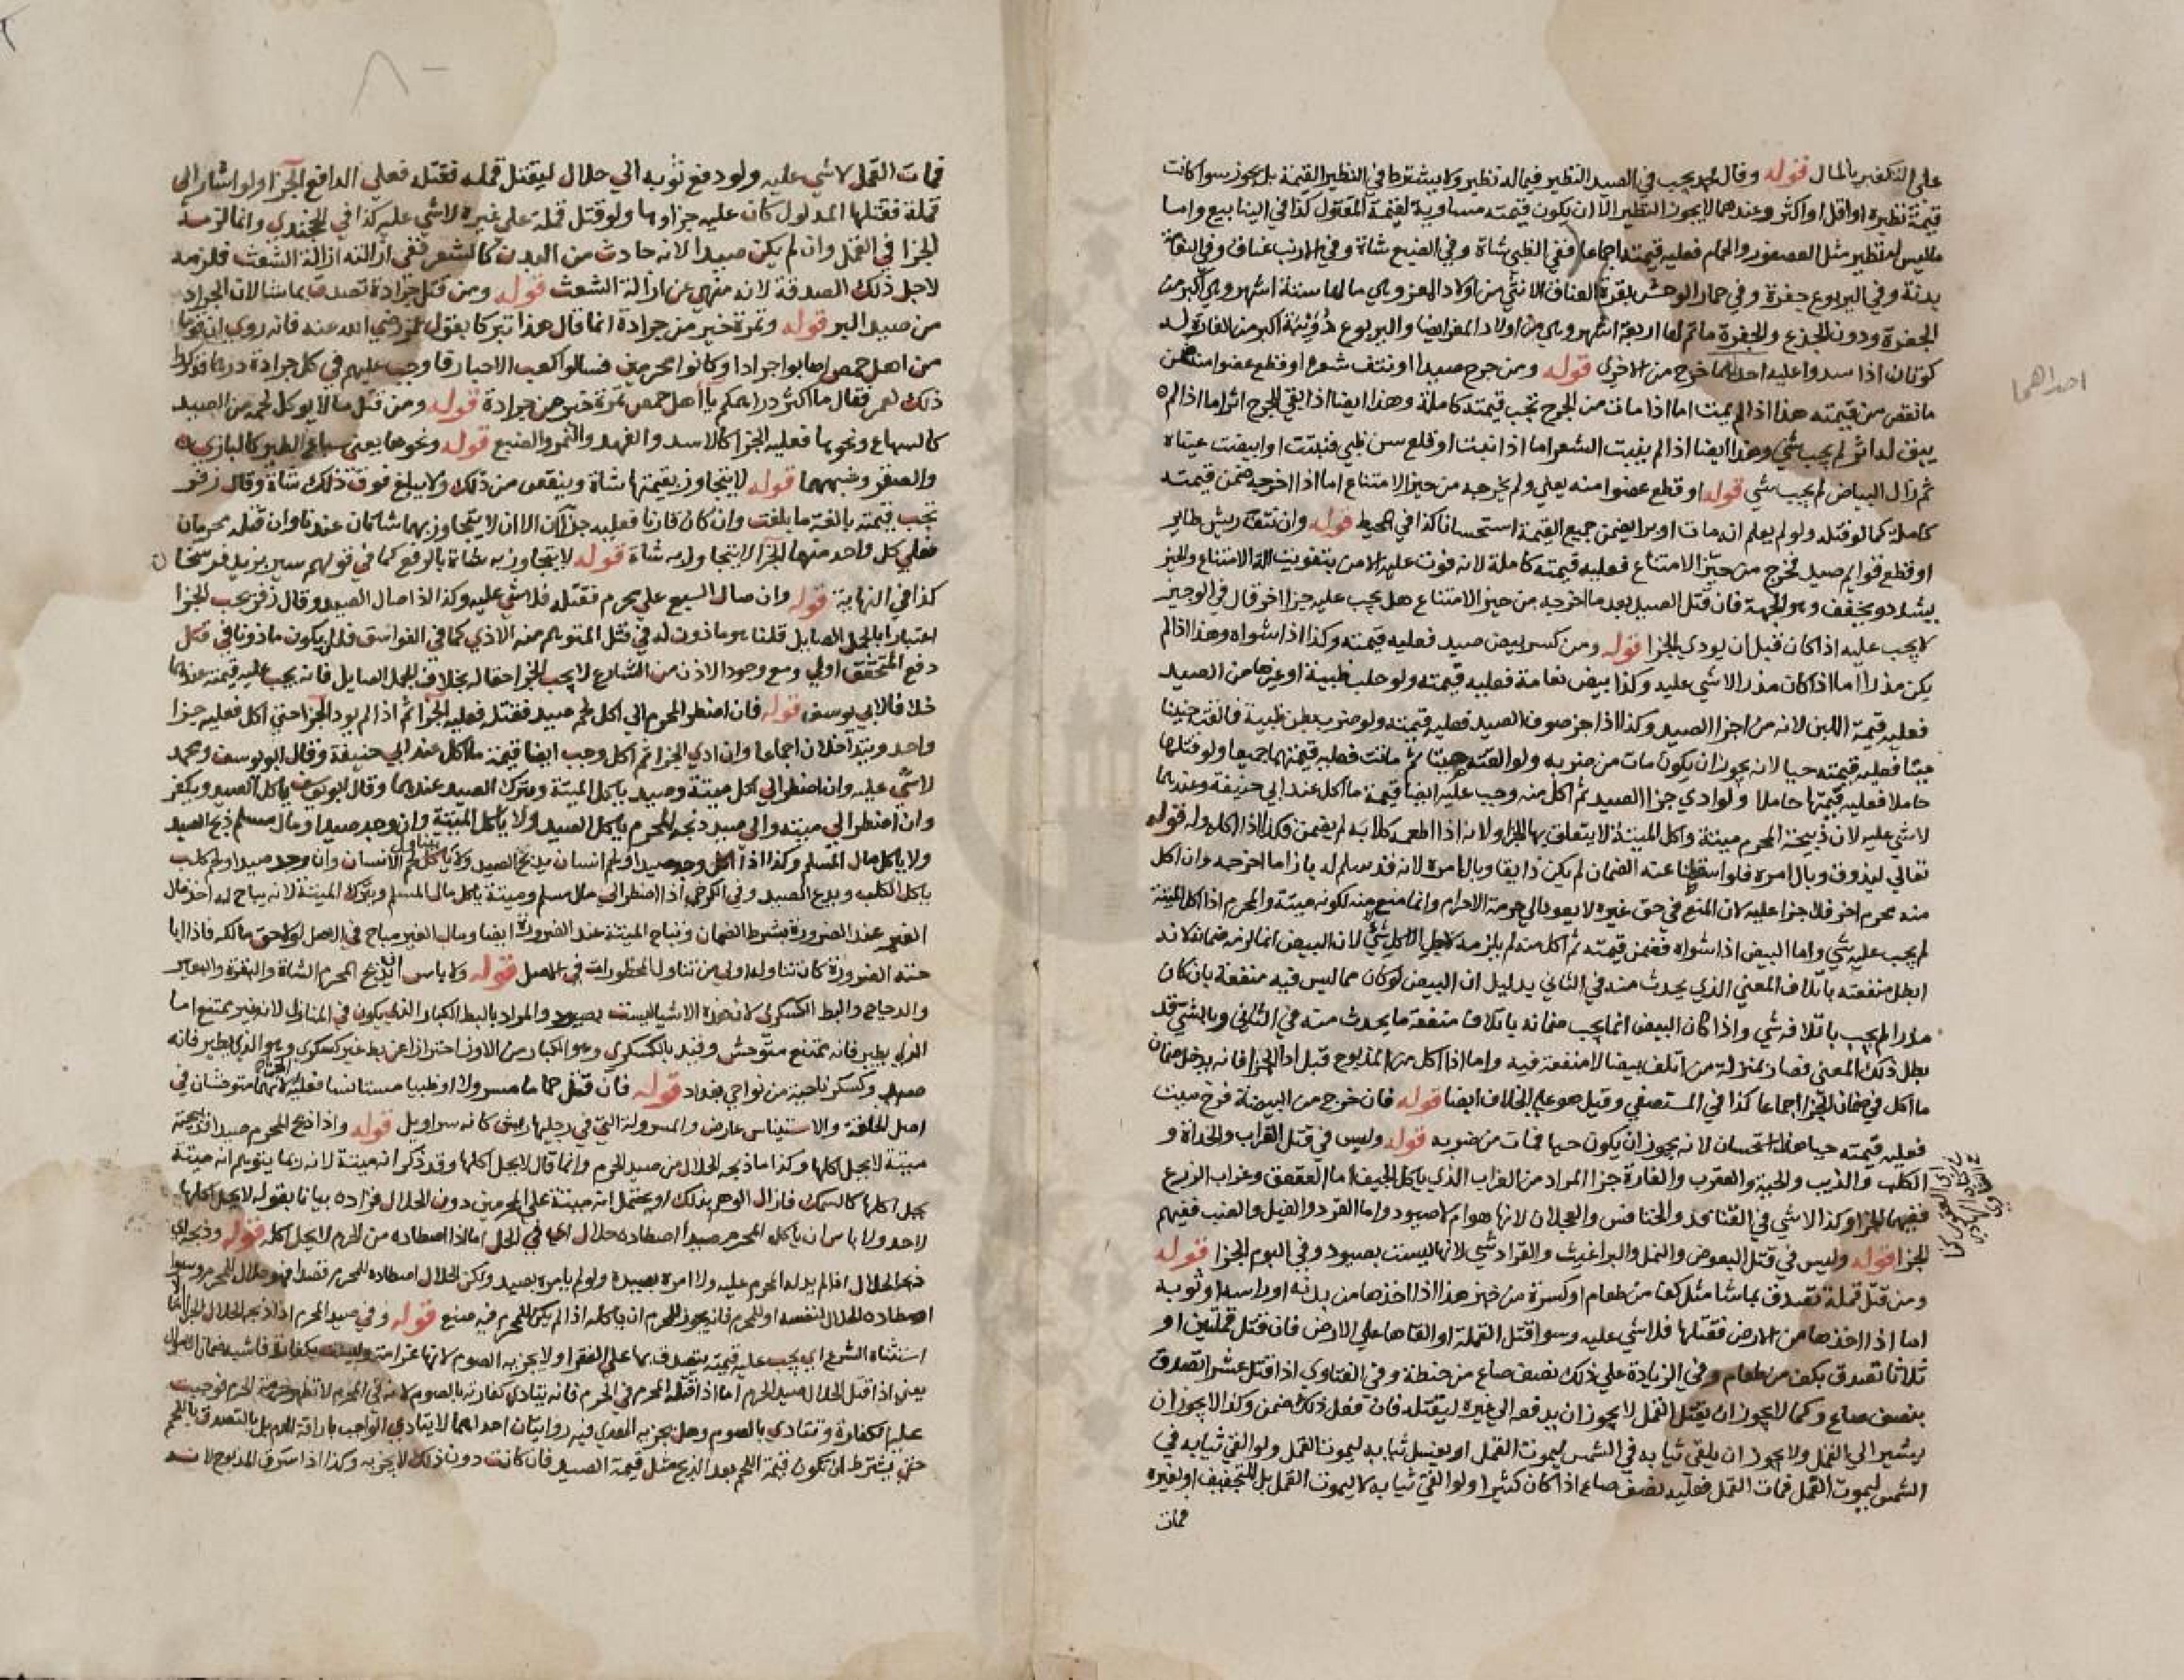 على التكفير بالمال قوله وقال محمد يجب في الصيد النظير فيما له نظير ولا يشترط في النظير القيمة بل يجوز سوا كانت
قيمة نظيره او اقل او اكثر وعندهما لا يجوز النظير الا ان يكون قيمته مساوية لقيمة المقتول كذا في الينابيع واما
ما ليس له نظير مثل العصفور والحمام فعليه قيمته اجماعا ففي الظبي شاة وفي الضبع شاة وفي الارنب عناق وفي النعامة
بدنة وفي اليربوع جفرة وفي حمار الوحش بقرة العناق الانثى من اولاد المعز وهي ما لها ستة اشهر وهي اكبر من
الجفرة ودون الجذع والجفرة ما تم لها اربعة اشهر وهي من اولاد المعز ايضا واليربوع دويبة اكبر من الفارة له
كوتان اذا سدوا عليه احدهما خرج من الاخرى قوله ومن جرح صيدا او نتف شعره او قطع عضوا منه ضمن
ما نقص من قيمته هذا اذا لم يمت اما اذا مات من الجرح تجب قيمته كاملة وهذا ايضا اذا بقي للجرح اثر اما اذا لم
يبق له اثر لم يجب شي وهذا ايضا اذا لم ينبت الشعر اما اذا نبت او قلع سن ظبي فنبتت او ابيضت عيناه
ثم زال البياض لم يجب شي قوله او قطع عضوا منه يعني ولم يخرجه من حيز الامتناع اما اذا اخرجه ضمن قيمته
كاملة كما لو قتله ولو لم يعلم انه مات او برا يضمن جميع القيمة استحسانا كذا في المحيط قوله وان نتف ريش طاير
او قطع قوايم صيد فخرج من حيز الامتناع فعليه قيمته كاملة لانه فوت عليه الامن بتفويت الة الامتناع والحيز
يشدد ويخفف وهو الجهة فان قتل الصيد بعد ما اخرجه من حيز الامتناع هل يجب عليه جزا اخر قال في الوجيز
لا يجب عليه اذا كان قبل ان يودي الجزا قوله ومن كسر بيض صيد فعليه قيمته وكذا اذا شواه وهذا اذا لم
يكن مذرا اما اذا كان مذرا لا شي عليه وكذا بيض نعامة فعليه قيمته ولو حلب ظبية او غيرها من الصيد
فعليه قيمة اللبن لانه من اجزا الصيد وكذا اذا جز صوف الصيد فعليه قيمته ولو ضرب بطن ظبية فالقت جنينا
ميتا فعليه قيمته حيا لانه يجوز ان يكون مات من ضربه ولو القته ميتا ثم ماتت فعليه قيمتهما جميعا ولو قتلها
حاملا فعليه قيمتها حاملا ولو ادي جزا الصيد ثم اكل منه وجب عليه ايضا قيمة ما اكل عند ابي حنيفة وعندهما
لا شي عليه لان ذبيحة المحرم ميتة واكل الميتة لا يتعلق بها الجزا ولانه اذا اطعمه كلابه لم يضمن فكذا اذا اكله وله قوله
تعالي ليذوق وبال امره فلو اسقطنا عنه الضمان لم يكن ذايقا وبال امره لانه قد سلم له بازا ما اخرجه وان اكل
منه محرم اخر فلا جزا عليه لان المنع في حق غيره لا يعود الي حرمة الاحرام وانما منع منه لكونه ميتة والمحرم اذا اكل الميتة
لم يجب عليه شي واما البيض اذا شواه فضمن قيمته ثم اكل منه لم يلزمه لاجل الاكل شي لان البيض انما لزمه ضمانه لانه
ابطل منفعته باتلاف المعني الذي يحدث منه في الثاني بدليل ان البيض لو كان مما ليس فيه منفعة بان كان
مذرا لم يجب باتلافه شي واذا كان البيض انما يجب ضمانه باتلاف منفعة ما يحدث منه في الثاني وبالشي قد
بطل ذلك المعني فصار بمنزلة من اتلف بيضا لا منفعة فيه واما اذا اكل من المذبوح قبل اداء الجزا فانه يدخل ضمان
ما اكل في ضمان الجزا اجماعا كذا في المستصفي وقيل هو علي الخلاف ايضا قوله فان خرج من البيضة فرخ ميت
فعليه قيمته حيا هذا استحسان لانه يجوز ان يكون حيا فمات من ضربه قوله وليس في قتل الغراب والحداة و
الكلب والذيب والحية والعقرب والفارة جزا المراد من الغراب الذي ياكل الجيف اما العقعق وغراب الزرع
ففيهما الجزا وكذا لا شي في القنافذ والخنافس والجعلان لانها هوام لا صيود واما القرد والفيل والضب ففيهم
الجزا قوله وليس في قتل البعوض والنمل والبراغيث والقراد شي لانها ليست بصيود وفي البوم الجزا قوله
ومن قتل قملة تصدق بما شا مثل كف من طعام او كسرة من خبز هذا اذا اخذها من بدنه او راسه او ثوبه
اما اذا اخذها من الارض فقتلها فلا شي عليه وسوا قتل القملة او القاها علي الارض فان قتل قملتين او
ثلاثا تصدق بكف من طعام وفي الزيادة علي ذلك نصف صاع من حنطة وفي الفتاوي اذا قتل عشرا تصدق
بنصف صاع وكما لا يجوز ان يقتل القمل لا يجوز ان يدفعه الي غيره ليقتله فان فعل ذلك ضمن وكذا لا يجوز ان
يشير الي القمل ولا يجوز ان يلقي ثيابه في الشمس ليموت القمل او يغسل ثيابه ليموت القمل ولو القي ثيابه في
الشمس ليموت القمل فمات القمل فعليه نصف صاع اذا كان كثيرا ولو القي ثيابه لا ليموت القمل بل للتجفيف او لغيره
فمات
احداهما
فمات القمل لا شي عليه ولو دفع ثوبه الي حلال ليقتل قمله فقتله فعلي الدافع الجزا ولو اشار الي
قملة فقتلها المدلول كان عليه جزاوها ولو قتل قملة علي غيره لا شي عليه كذا في الخجندي وانما لزمه
الجزا في القمل وان لم يكن صيدا لانه حادث من البدن كالشعر ففي ازالته ازالة الشعث فلزمه
لاجل ذلك الصدقة لانه منهي عن ازالة الشعث قوله ومن قتل جرادة تصدق بما شا لان الجراد
من صيد البر قوله وتمرة خير من جرادة انما قال هذا تبركا بقول عمر رضي الله عنه فانه روي ان قوما
من اهل حمص اصابوا جرادا وكانوا محرمين فسالوا كعب الاحبار فاوجب عليهم في كل جرادة درهما فذكروا
ذلك لعمر فقال ما اكثر دراهمكم يا اهل حمص تمرة خير من جرادة قوله ومن قتل ما لا يوكل لحمه من الصيد
كالسباع ونحوها فعليه الجزا كالاسد والفهد والنمر والضبع قوله ونحوها يعني سباع الطير كالبازي
والصقر وشبههما قوله لا يتجاوز بقيمتها شاة وينقص من ذلك ولا يبلغ فوق ذلك شاة وقال زفر
تجب قيمته بالغة ما بلغت وان كان قارنا فعليه جزاان الا ان لا يتجاوز بهما شاتان عندنا وان قتله محرمان
فعلي كل واحد منهما الجزا لا يتجاوز به شاة قوله لا يتجاوز به شاة بالرفع كما في قولهم سير بزيد فرسخان
كذا في النهاية قوله وان صال السبع علي محرم فقتله فلا شي عليه وكذا اذا صال الصيد وقال زفر يجب الجزا
اعتبارا بالجمل الصايل قلنا هو ماذون له في قتل المتوهم منه الاذي كما في الفواسق فلان يكون ماذونا في قتل
دفع المتحقق اولي ومع وجود الاذن من الشارع لا يجب الجزا حقا له بخلاف الجمل الصايل فانه يجب عليه قيمته عندنا
خلافا لابي يوسف قوله فان اضطر المحرم الي اكل لحم صيد فقتله فعليه الجزا ثم اذا لم يود الجزا حتي اكل فعليه جزا
واحد ويتداخلان اجماعا وان ادي الجزا ثم اكل وجب ايضا قيمة ما اكل عند ابي حنيفة وقال ابو يوسف ومحمد
لا شي عليه وان اضطر الي اكل ميتة وصيد ياكل الميتة ويترك الصيد عندهما وقال ابو يوسف ياكل الصيد ويكفر
وان اضطر الي ميتة والي صيد ذبحه المحرم ياكل الصيد ولا ياكل الميتة وان وجد صيدا ومال مسلم ذبح الصيد
ولا ياكل مال المسلم وكذا اذا وجد صيدا ولحم انسان يذبح الصيد ولا ياكل لحم الانسان وان وجد صيدا ولحم كلب
ياكل الكلب ويدع الصيد وفي الكرخي اذا اضطر الي مال مسلم وميتة ياكل مال المسلم ويترك الميتة لانه يباح له اخذ مال
الغير عند الضرورة بشرط الضمان وتباح الميتة عند الضرورة ايضا ومال الغير مباح في الاصل لولا حق مالكه فاذا ابا
حته الضرورة كان تناوله اولي من تناول المحظورات في الاصل قوله ولا باس ان يذبح المحرم الشاة والبقرة والبعير
والدجاج والبط الكسكري لان هذه الاشيا ليست بصيود والمراد بالبط الكبار الذي يكون في المنازل لانه غير ممتنع اما
الذي يطير فانه ممتنع متوحش وقيد بالكسكري وهو الكبار من الاوز احترازا عن بط غير كسكري وهو الذي يطير فانه
صيد وكسكر ناحية من نواحي بغداد قوله فان قتل حماما مسرولا او ظبيا مستانسا فعليه الجزا لانهما متوحشان في
اصل الخلقة والاستيناس عارض والمسرولة التي في رجليها ريش كانه سراويل قوله واذا ذبح المحرم صيدا فذبيحته
ميتة لا يحل اكلها وكذا ما ذبحه الحلال من صيد الحرم وانما قال لا يحل اكلها وقد ذكر انه ميتة لانه ربما يتوهم انه ميتة
يحل اكلها كالسمك فازال الوهم بذلك او يحتمل انه ميتة علي المحرمين دون الحلال فزاده بيانا بقوله لا يحل اكلها
لاحد ولا باس ان ياكل المحرم صيدا اصطاده حلال اي في الحل اما اذا اصطاده من الحرم لا يحل اكله قوله وذبحه اي
ذبحه الحلال اذا لم يدله المحرم عليه ولا امره بصيده ولو لم يامره بصيد ولكن الحلال اصطاده للمحرم قصدا فهو حلال للمحرم وسوا
اصطاده الحلال لنفسه او للمحرم فانه يجوز للمحرم ان ياكله اذا لم يكن للمحرم فيه صنع قوله وفي صيد الحرم اذا ذبحه الحلال الجزا
يعني اذا قتل الحلال صيد الحرم اما اذا قتله المحرم في الحرم فانه يتادي كفارته بالصوم لانه في المحرم لا تظهر حرمة الحرم فوجبت
عليه الكفارة وتتادي بالصوم وهل يجزيه الهدي فيه روايتان احداهما لا يتادي الواجب باراقة الدم بل بالتصدق باللحم
حتي يشترط ان تكون قيمة اللحم بعد الذبح مثل قيمة الصيد فان كانت دون ذلك لا يجزيه وكذا اذا سرق المذبوح لانه